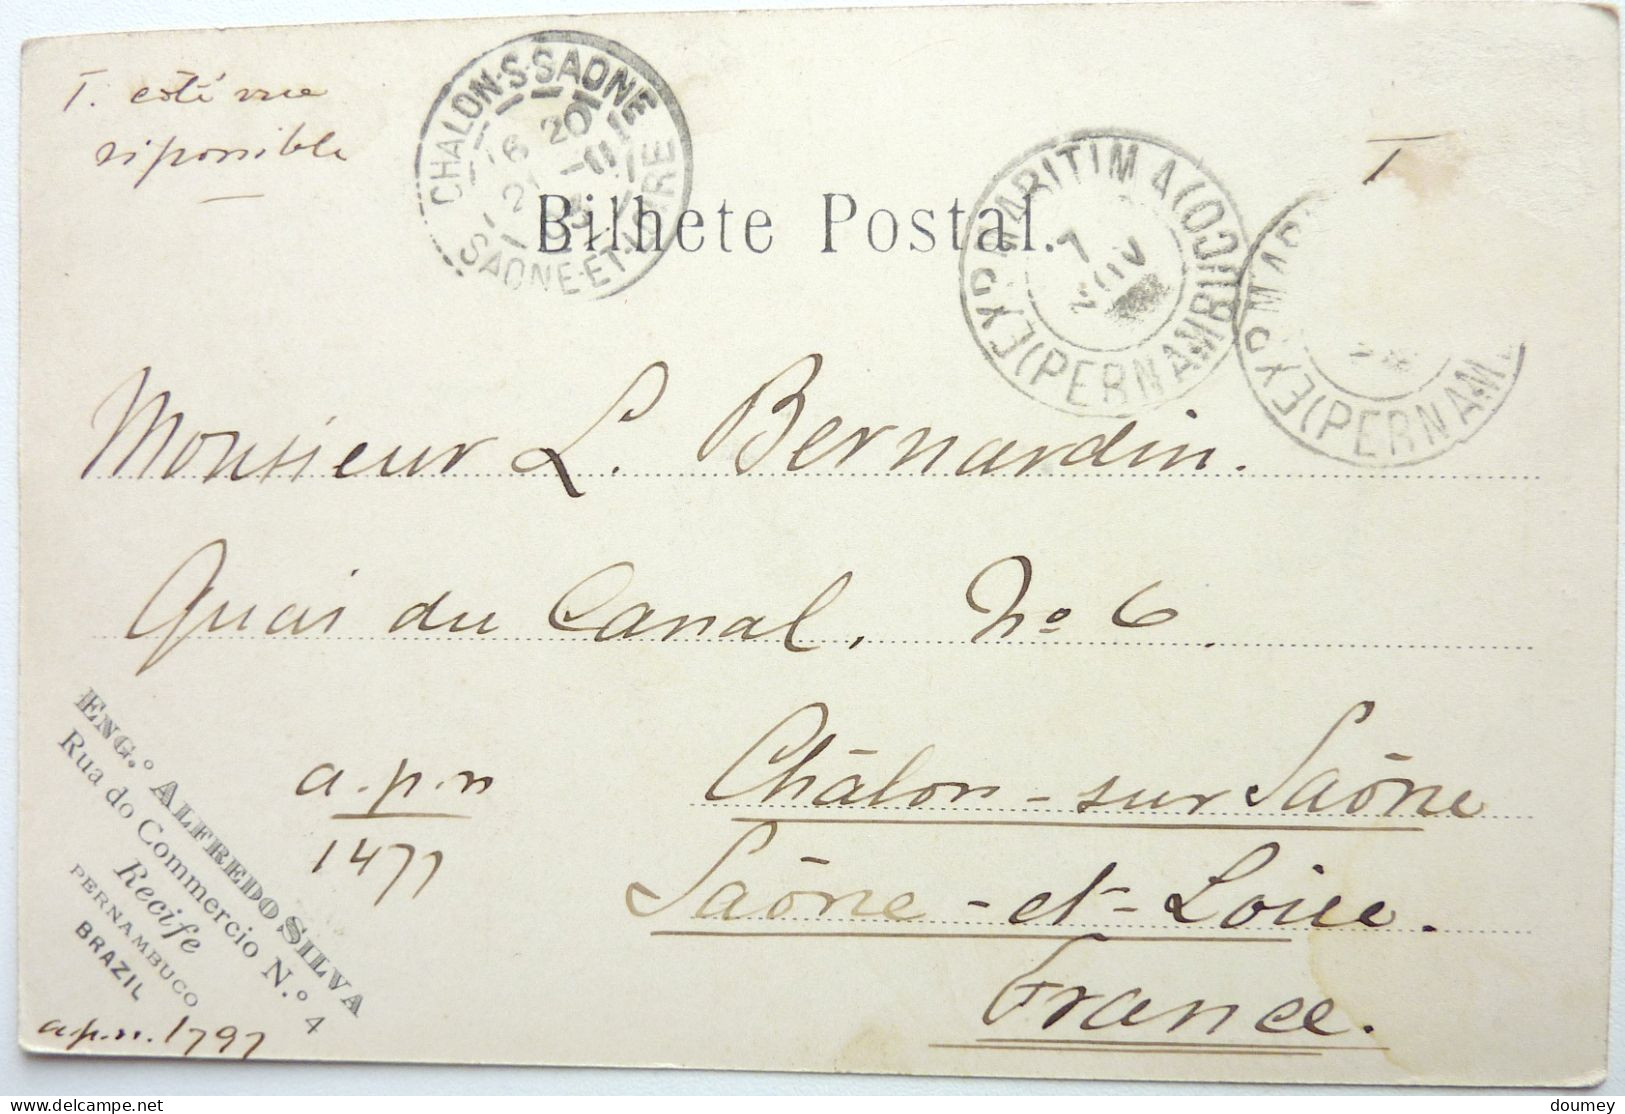 T. côté vue
riponible
CHALON-S-SAONE
16 20
21 -11
03
SAONE-ET-LOIRE
Bilhete Postal.
MARITIMA (OCIUCO)
7
NOV
EXP
(PERNAMBU
T
MAR
EXP
(PERNAM
Monsieur L. Bernardin.
Quai du Canal, No 6.
Châlon-sur Saône
Saône-et-Loire.
France.
ENG.º ALFREDO SILVA
Rua do Commercio N.º 4
Recife
PERNAMBUCO
BRAZIL
a.p.n
1477
a.p.n. 1797
doumey